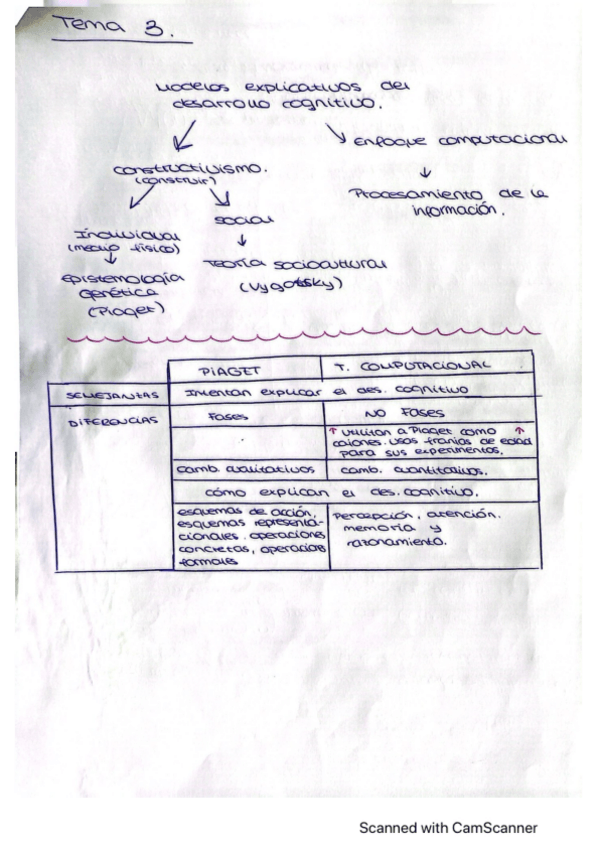 Tema 3.
Modelos explicativos del
desarrollo cognitivo.
Enfoque computacional
constructivismo.
(construir)
Procesamiento de la
información.
Individual
(medio físico)
social
Epistemología
genética
(Piaget)
Teoría sociocultural
(Vygotsky)
PIAGET
T. COMPUTACIONAL
SEMEJANZAS
Intentan explicar el des. cognitivo
DIFERENCIAS
Fases
NO Fases
↑ utilizan a Piaget como ↑
cajones. Usas franjas de edad
para sus experimentos.
camb. cualitativos
camb. cuantitativos.
cómo explican el des. cognitivo.
esquemas de acción,
esquemas representa-
cionales. operaciones
concretas, operaciones
formales
Percepción, atención.
memoria y
razonamiento.
Scanned with CamScanner